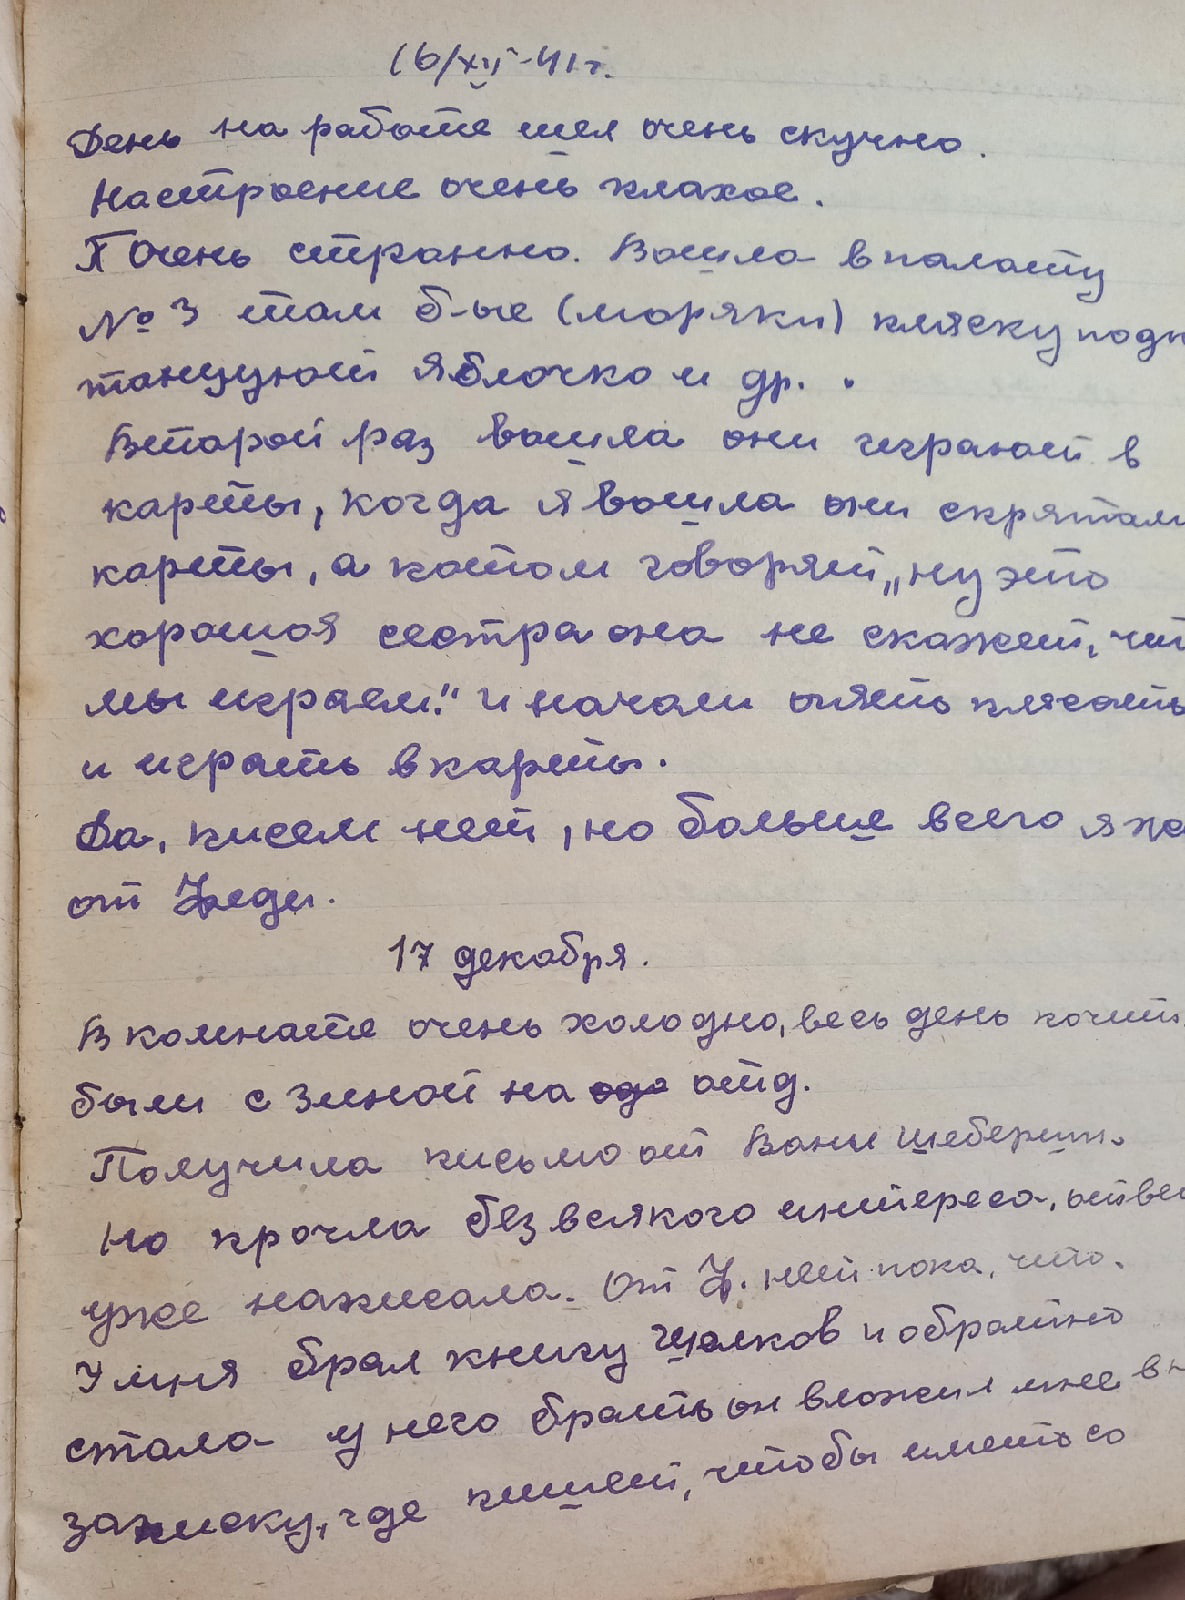 16/XII-41 г.
День на работе шел очень скучно.
Настроение очень плахое.
Очень странно. Вошла в палату
№ 3 там б-ые (моряки) пляску подн
танцуют Яблочко и др.
Второй раз вошла они играют в
карты, когда я вошла они спрятали
карты, а потом говорят „ну это
хорошая сестра она не скажет, что
мы играем." и начали опять плясать
и играть в карты.
Да, писем нет, но больше всего я же
от Феди.
17 декабря.
В комнате очень холодно, весь день почти
были с Зиной на отд.
Получила письмо от Вани Шеберст.
Но прочла без всякого интереса, ответ
уже написала. От Ф. нет пока, что.
У мня брал книгу Щелков и обратно
стала у него брать он вложил мне в н
записку, где пишет, чтобы иметь со